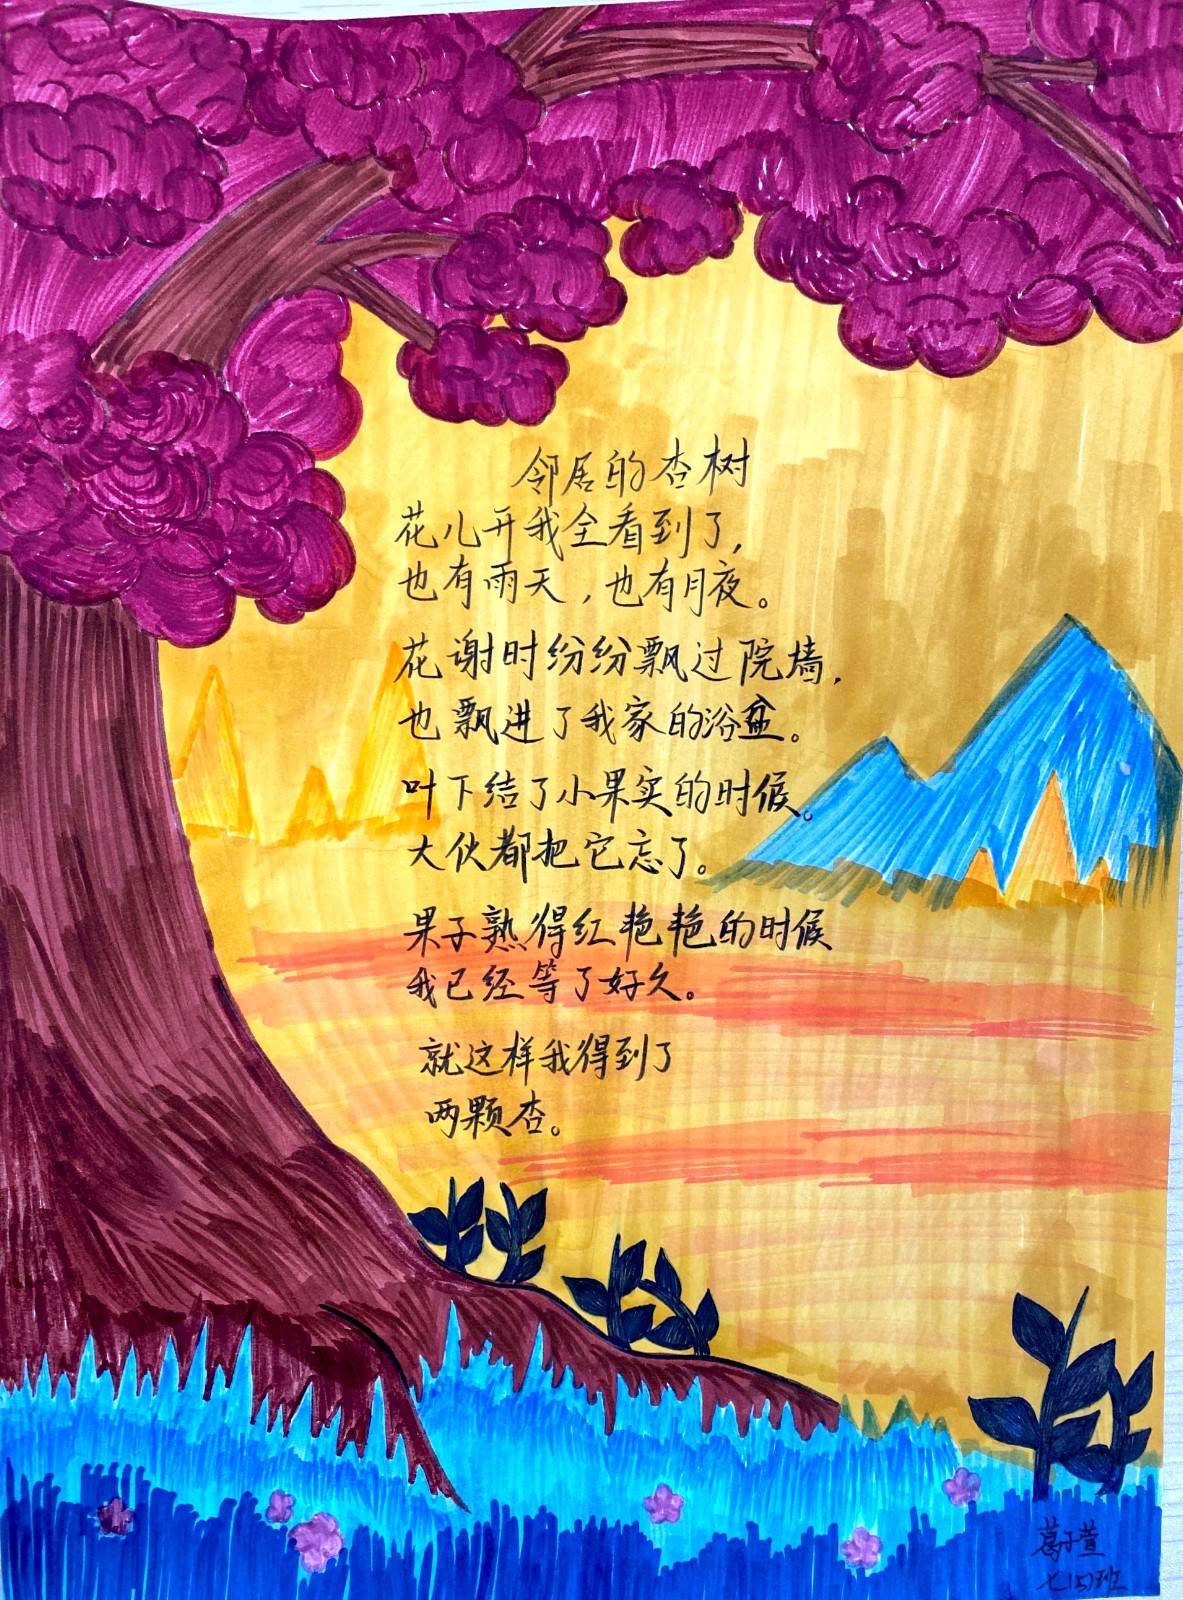 邻居的杏树
花儿开我全看到了，
也有雨天，也有月夜。
花谢时纷纷飘过院墙，
也飘进了我家的浴盆。
叶下结了小果实的时候。
大伙都把它忘了。
果子熟得红艳艳的时候
我已经等了好久。
就这样我得到了
两颗杏。
葛子萱
七(5)班